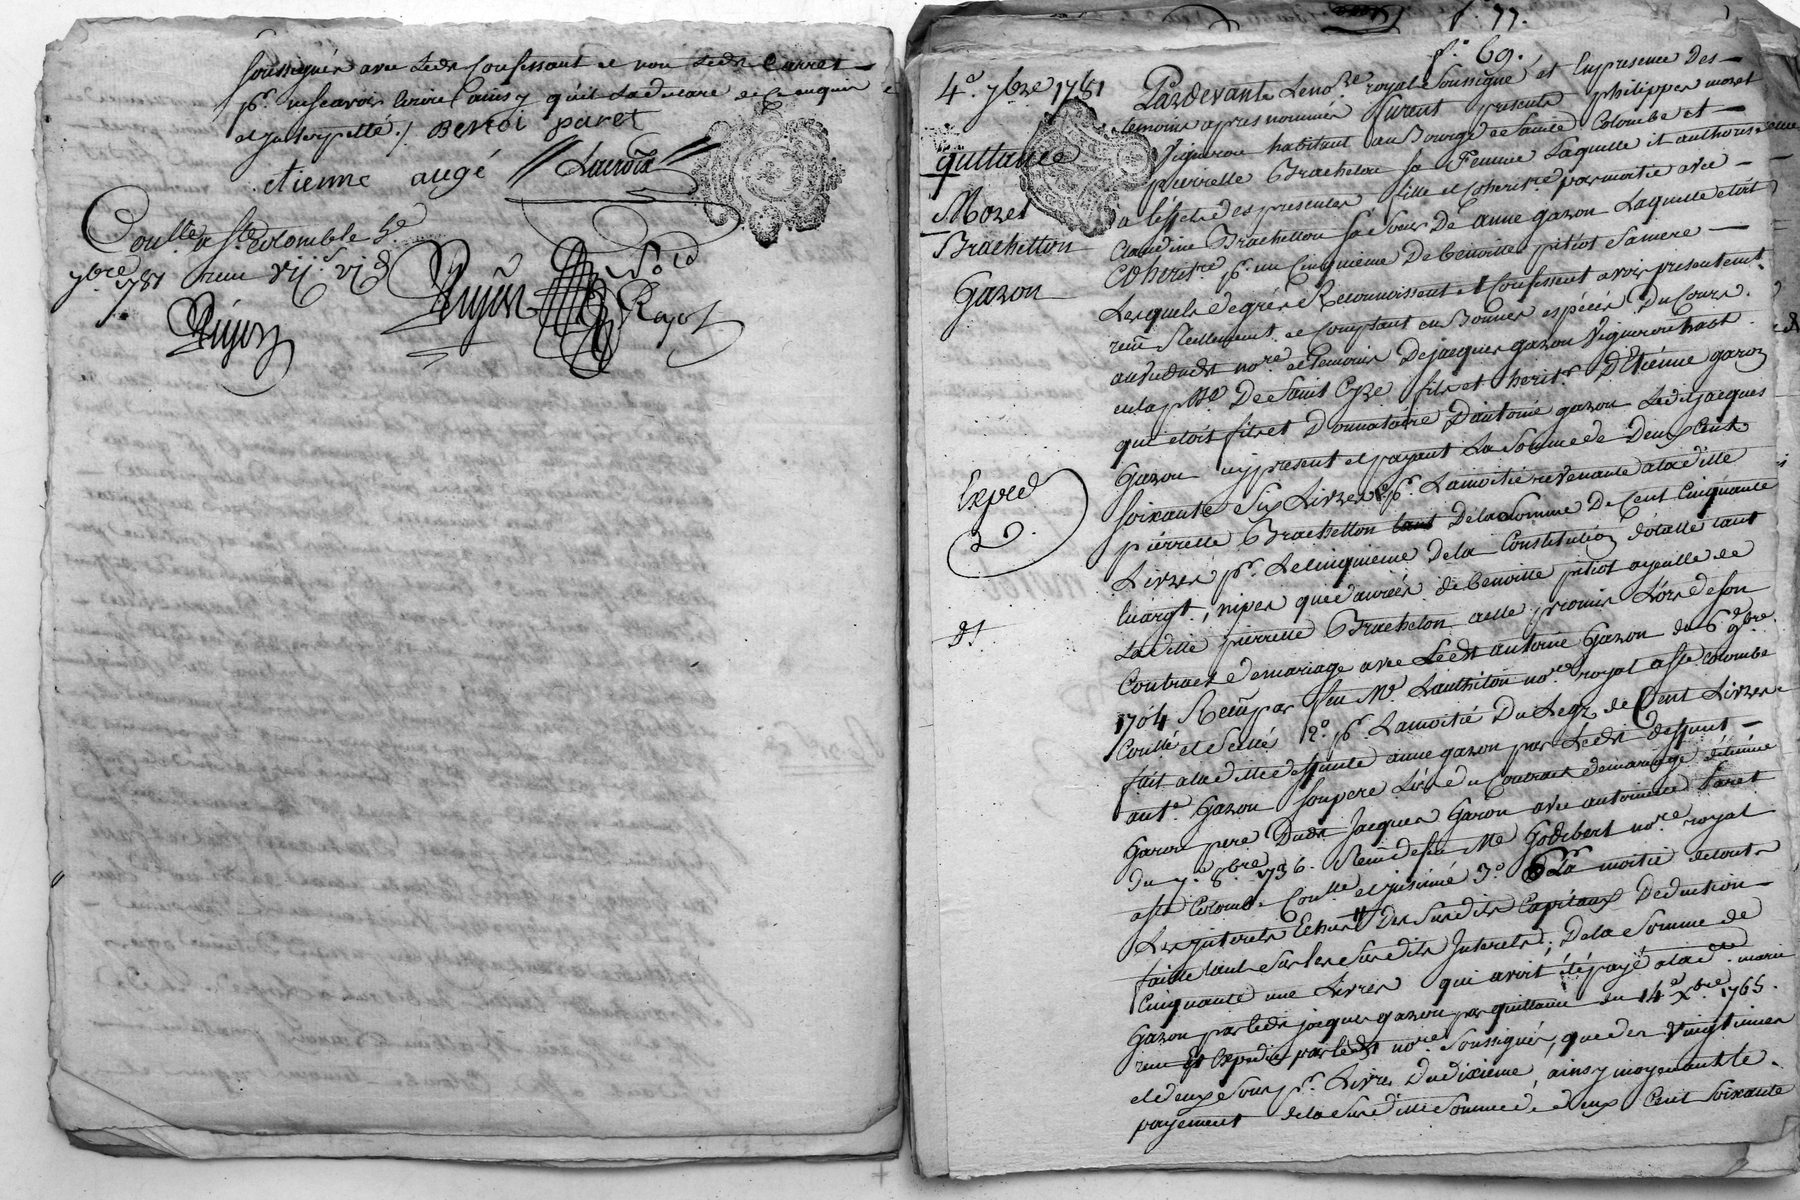 soussignés avec Ledt Confessant et non Ledt Carret
pr. ne scavoir Ecrire ainsy qu'il La declaré de ce enquis
et Interpellé ./ Benoi paret
etienne augé Lacroix
Conllé a ste Colombe Le
7bre 1781 reçu
Pupon Pupon Rajot
f. 77.
f.o 69.
4e. 7bre 1781
quittance
Mozet
Brachetton
Gazon
Expéd
Pardevant Le nore. royal Soussigné et En presence des
temoins apres nommés furent presents philippes mozet
Vigneron habitant au Bourg de sainte Colombe et
pierrette Bracheton sa Femme Laquelle il authorise
a L'effet des presentes fille et Coheritre. par moitié avec
Claudine Brachetton sa Soeur De anne gazon Laquelle etoit
Coheritre pr. un Cinquieme de benoitte pitiot sa mere
Lesquels de gré Reconnoissent et Confessent avoir presentemt.
reçu Réellement et Comptant en Bonnes espèces Du Cours
au vu dudt nore. et temoins De jacques gazon Vigneron habt.
en la psse De Saint Cyre fils et heritr. D'Etienne gazon
qui etoit fils et Donnataire D'antoine gazon Ledit jacques
Gazon icy present et payant La Somme de Deux Cent
soixante Six Livres pr. La moitié revenante a la ditte
pierrette Brachetton tant De la Somme De Cent Cinquante
Livres pr. Le cinquieme de la Constitution dotalle tant
En argt., nipes que d'aurées de benoitte pitiot ayeulle de
La ditte pierrette Brachéton a elle promis Lors de son
Contract de mariage avec Ledt antoine Gazon du 6 9bre.
1704 Reçu par feu Me. Lanthilon nore. royal a ste. Colombe
Conllé et Sellé 2o. pr. La moitié Du Legs de Cent Livres
fait a la ditte deffunte anne gazon par Ledt deffunt
ante. Gazon son pere Lors du Contract de mariage d'etienne
Gazon pere Dudt Jacques Gazon avec antoinette Paret
du 7. 8bre. 1736. Reçu de feu Me Godibert nore. royal
a ste Colombe Conllé et jnsinué 3o. La moitié de touts
Les jnterets Echus Des Susdits Capitaux Deduction
faitte tant Sur les Susdits Interets, De la Somme de
Cinquante une Livres qui avoit été payé a la de. marie
Gazon par Ledt jacques gazon par quittance du 14e. xbre. 1765.
reçu Et Expedié par Ledt nore. Soussigné, que des Vingtiemes
et deux Sous pr. Livre Du dixieme, ainsy moyenant le
payement de la Susditte Somme de deux Cent Soixante